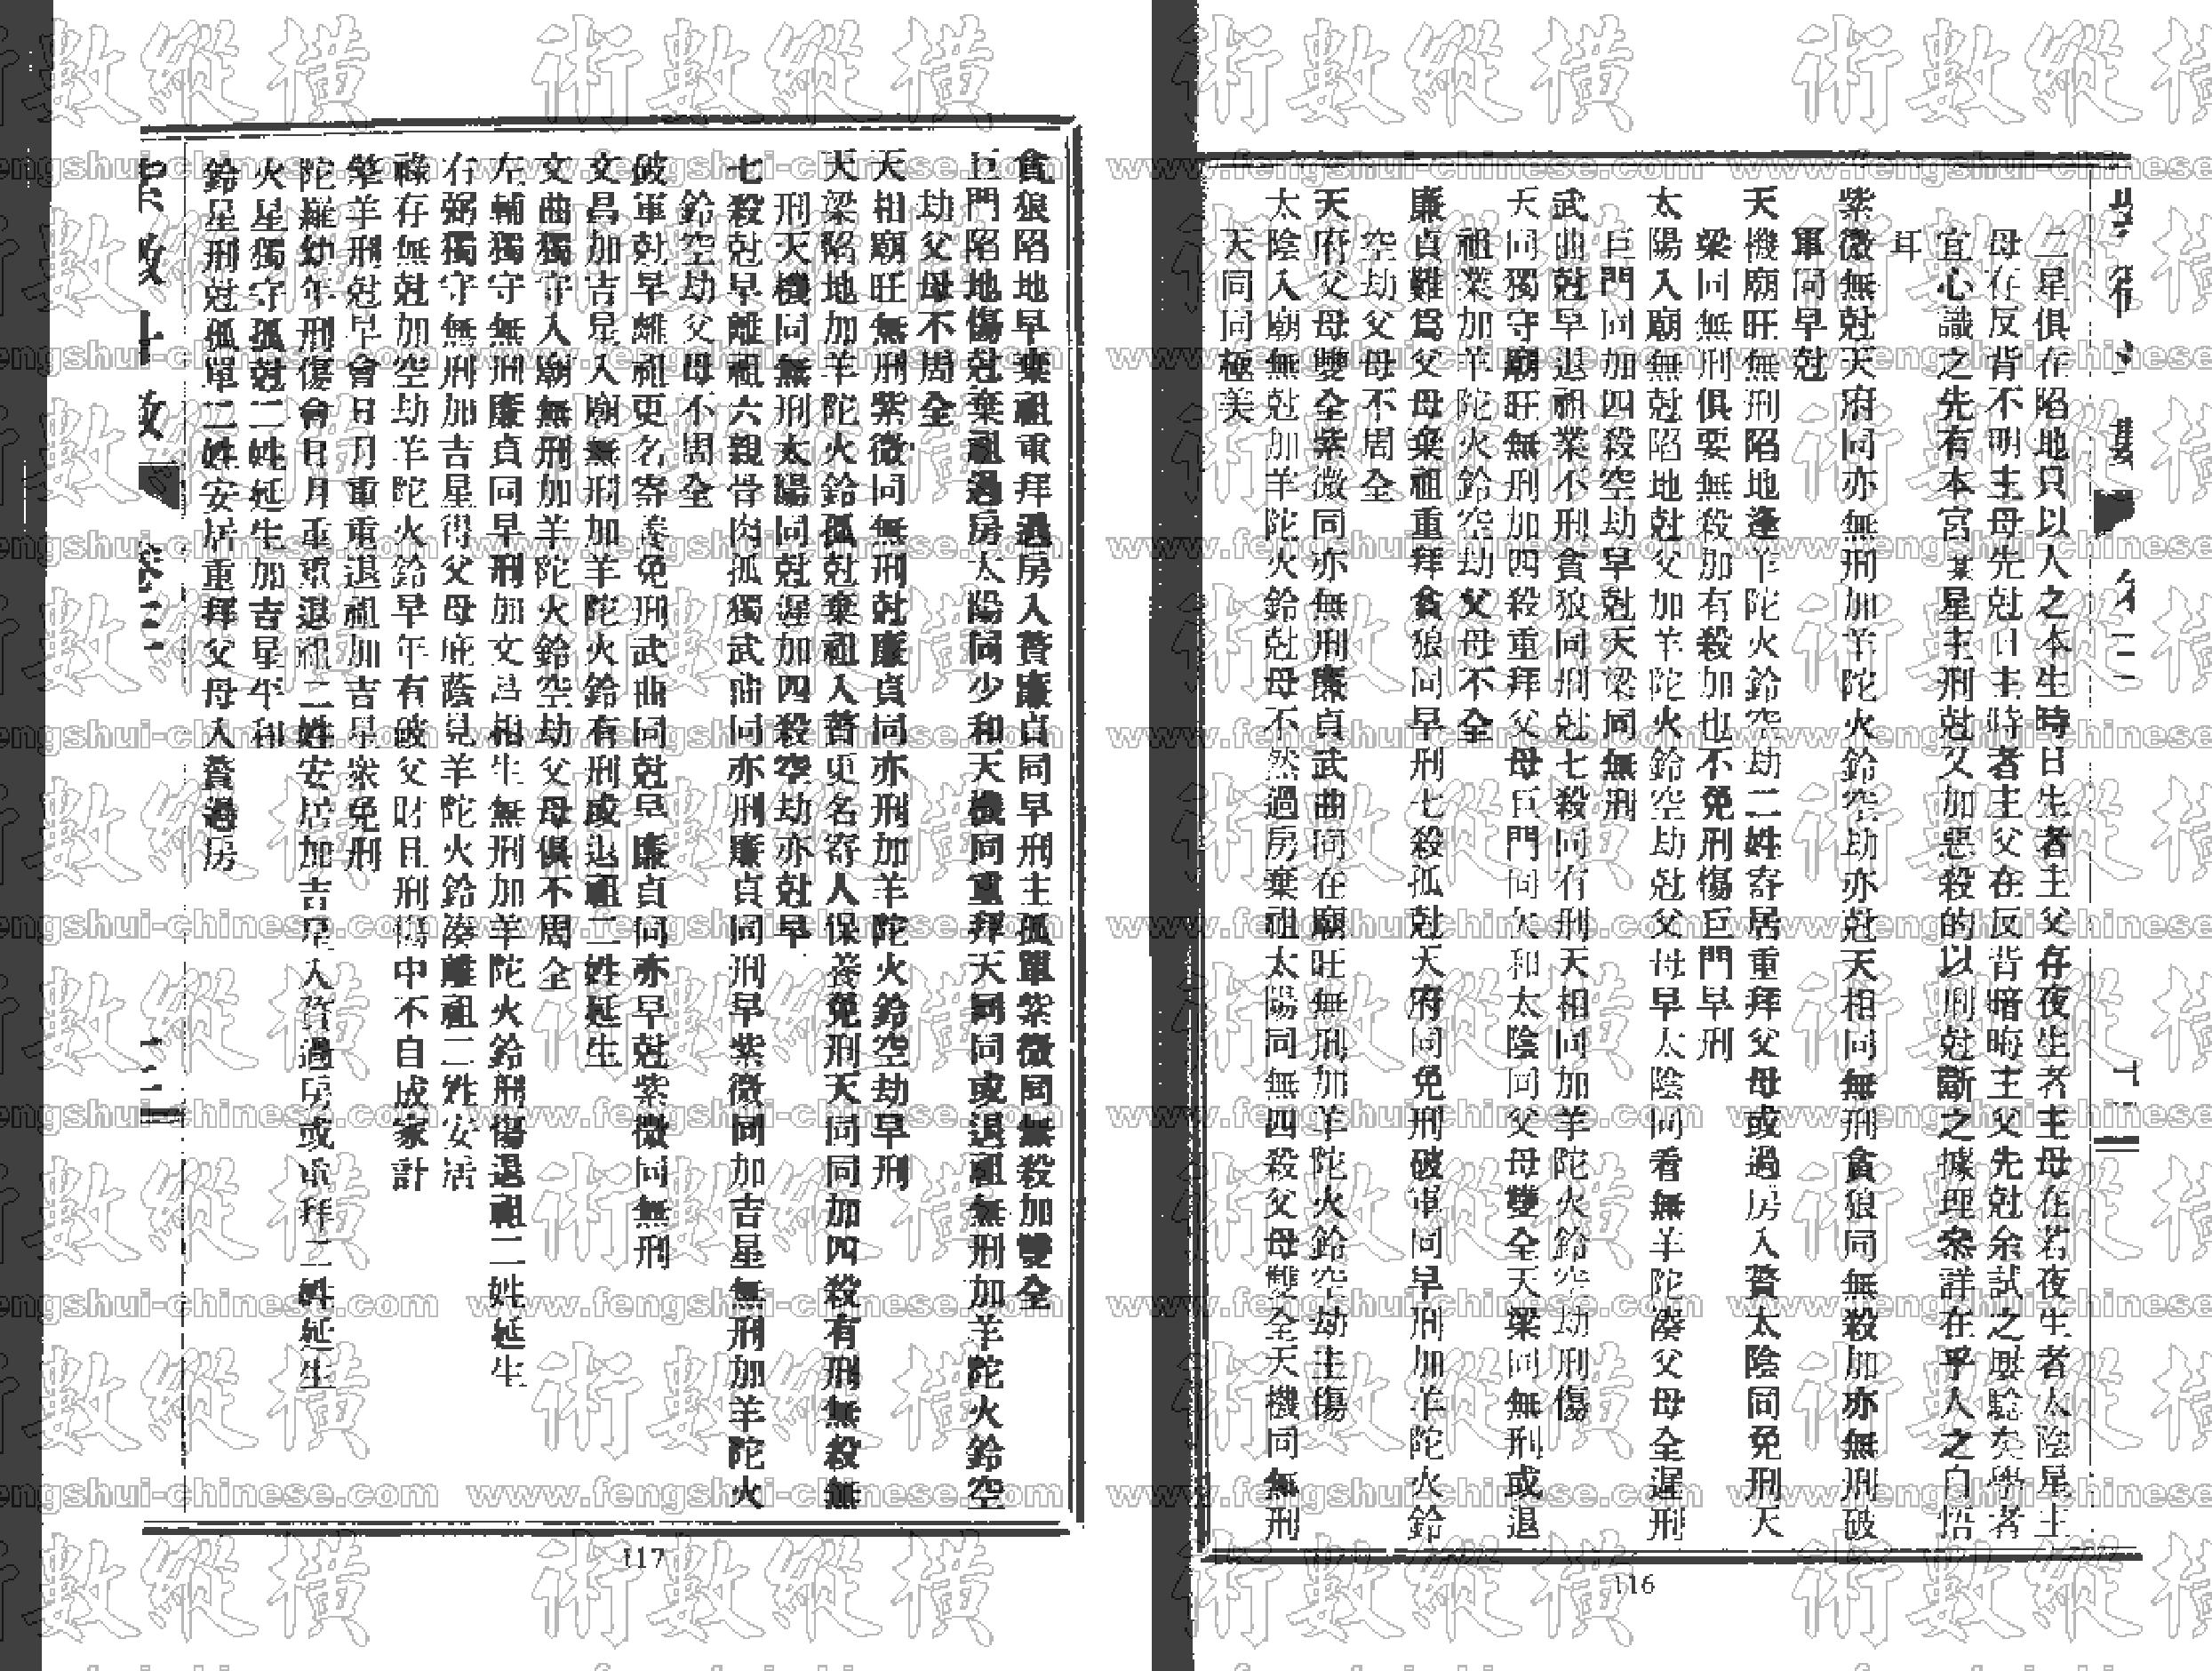 二星俱在陷地只以人之本生時日生者主父存夜生者主母在若夜生者太陰星主
母存反背不明主母先尅日主時者主父在反背暗晦主父先尅余試之屢驗矣學者
宜心識之先有本宮某星主刑尅又加惡殺的以刑尅斷之據理條詳在乎人之自悟
耳
紫微無尅天府同亦無刑加羊陀火鈴空劫亦尅天相同無刑貪狼同無殺加亦無刑破
軍同早尅
天機廟旺無刑陷地逢羊陀火鈴空劫二姓寄居重拜父母或過房入贅太陰同免刑天
梁同無刑俱要無殺加有殺加也不免刑傷巨門早刑
太陽入廟無尅陷地尅父加羊陀火鈴空劫尅父母早太陰同看無羊陀湊父母全遲刑
巨門同加四殺空劫早尅天梁同無刑
武曲尅早退祖業不刑貪狼同刑尅七殺同有刑天相同加羊陀火鈴空劫刑傷
天同獨守廟旺無刑加四殺重拜父母巨門同欠和太陰同父母雙全天梁同無刑或退
祖業加羊陀火鈴空劫父母不全
廉貞難為父母棄祖重拜貪狼同早刑七殺孤尅天府同免刑破軍同早刑加羊陀火鈴
空劫父母不周全
天府父母雙全紫微同亦無刑廉貞武曲同在廟旺無刑加羊陀火鈴空劫主傷
太陰入廟無尅加羊陀火鈴尅母不然過房棄祖太陽同無四殺父母雙全天機同無刑
天同同極美
116
貪狼陷地早棄祖重拜過房入贅廉貞同早刑主孤單紫微同無殺加雙全
巨門陷地傷尅棄祖過房太陽同少和天機同重拜天同同或退祖無刑加羊陀火鈴空
劫父母不周全
天相廟旺無刑紫微同無刑尅廉貞同亦刑加羊陀火鈴空劫早刑
天梁陷地加羊陀火鈴孤尅棄祖入贅更名寄人保養免刑天同同加四殺有刑無殺無
刑天機同無刑太陽同尅遲加四殺空劫亦尅早
七殺尅早離祖六親骨肉孤獨武曲同亦刑廉貞同刑早紫微同加吉星無刑加羊陀火
鈴空劫父母不周全
破軍尅早離祖更名寄養免刑武曲同尅早廉貞同亦早尅紫微同無刑
文昌加吉星入廟無刑加羊陀火鈴有刑或退祖二姓延生
文曲獨守入廟無刑加羊陀火鈴空劫父母俱不周全
左輔獨守無刑廉貞同早刑加文昌相生無刑加羊陀火鈴刑傷退祖二姓延生
右弼獨守無刑加吉星得父母庇蔭見羊陀火鈴湊離祖二姓安居
祿存無尅加空劫羊陀火鈴早年有破父財且刑傷中不自成家計
擎羊刑尅早會日月重重退祖加吉星衆免刑
陀羅幼年刑傷會日月重重退祖二姓安居加吉星入贅過房或重拜二姓延生
火星獨守孤尅二姓延生加吉星平和
鈴星刑尅孤單二姓安居重拜父母入贅過房
117
術數縱橫
www.fengshui-chinese.com